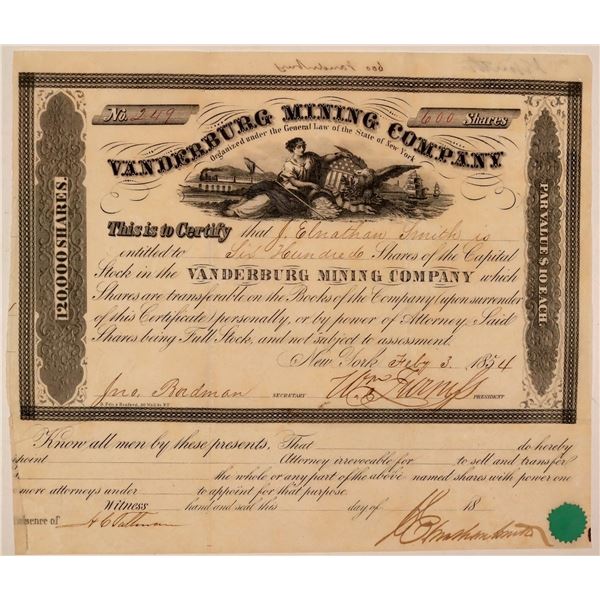 600 Vanderburg
No. 249
VANDERBURG MINING COMPANY
600 Shares
Organized under the General Law of the State of New York
120,000 SHARES.
PAR VALUE $10 EACH.
This is to Certify that J. Elnathan Smith is
entitled to Six Hundred Shares of the Capital
Stock in the VANDERBURG MINING COMPANY which
Shares are transferable on the Books of the Company (upon surrender
of this Certificate) personally, or by power of Attorney. Said
Shares being Full Stock, and not subject to assessment.
New York Feby 3 1854
Jno. Bordman SECRETARY
PRESIDENT
Know all men by these presents, That do hereby
appoint Attorney irrevocable for to sell and transfer
the whole or any part of the above named shares with power one
more attorneys under to appoint for that purpose.
Witness hand and seal this day of 18
esence of
J. Elnathan Smith